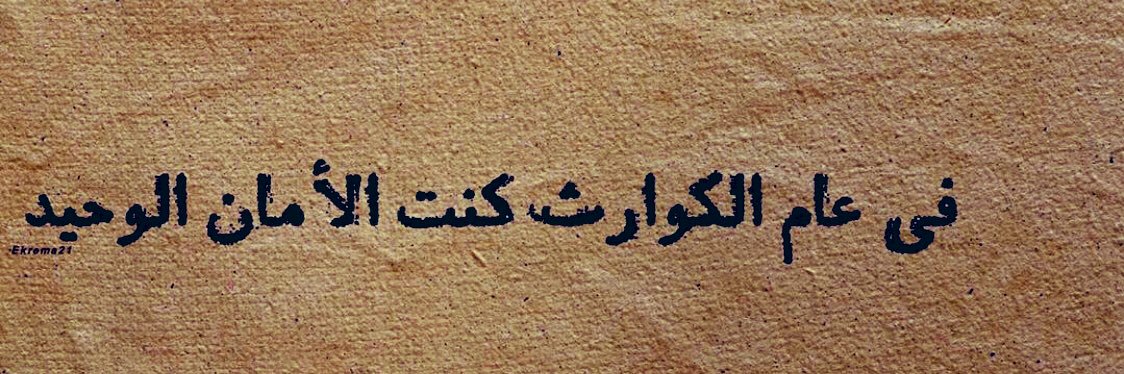 فى عام الكوارث كنت الأمان الوحيد
Ekrema21